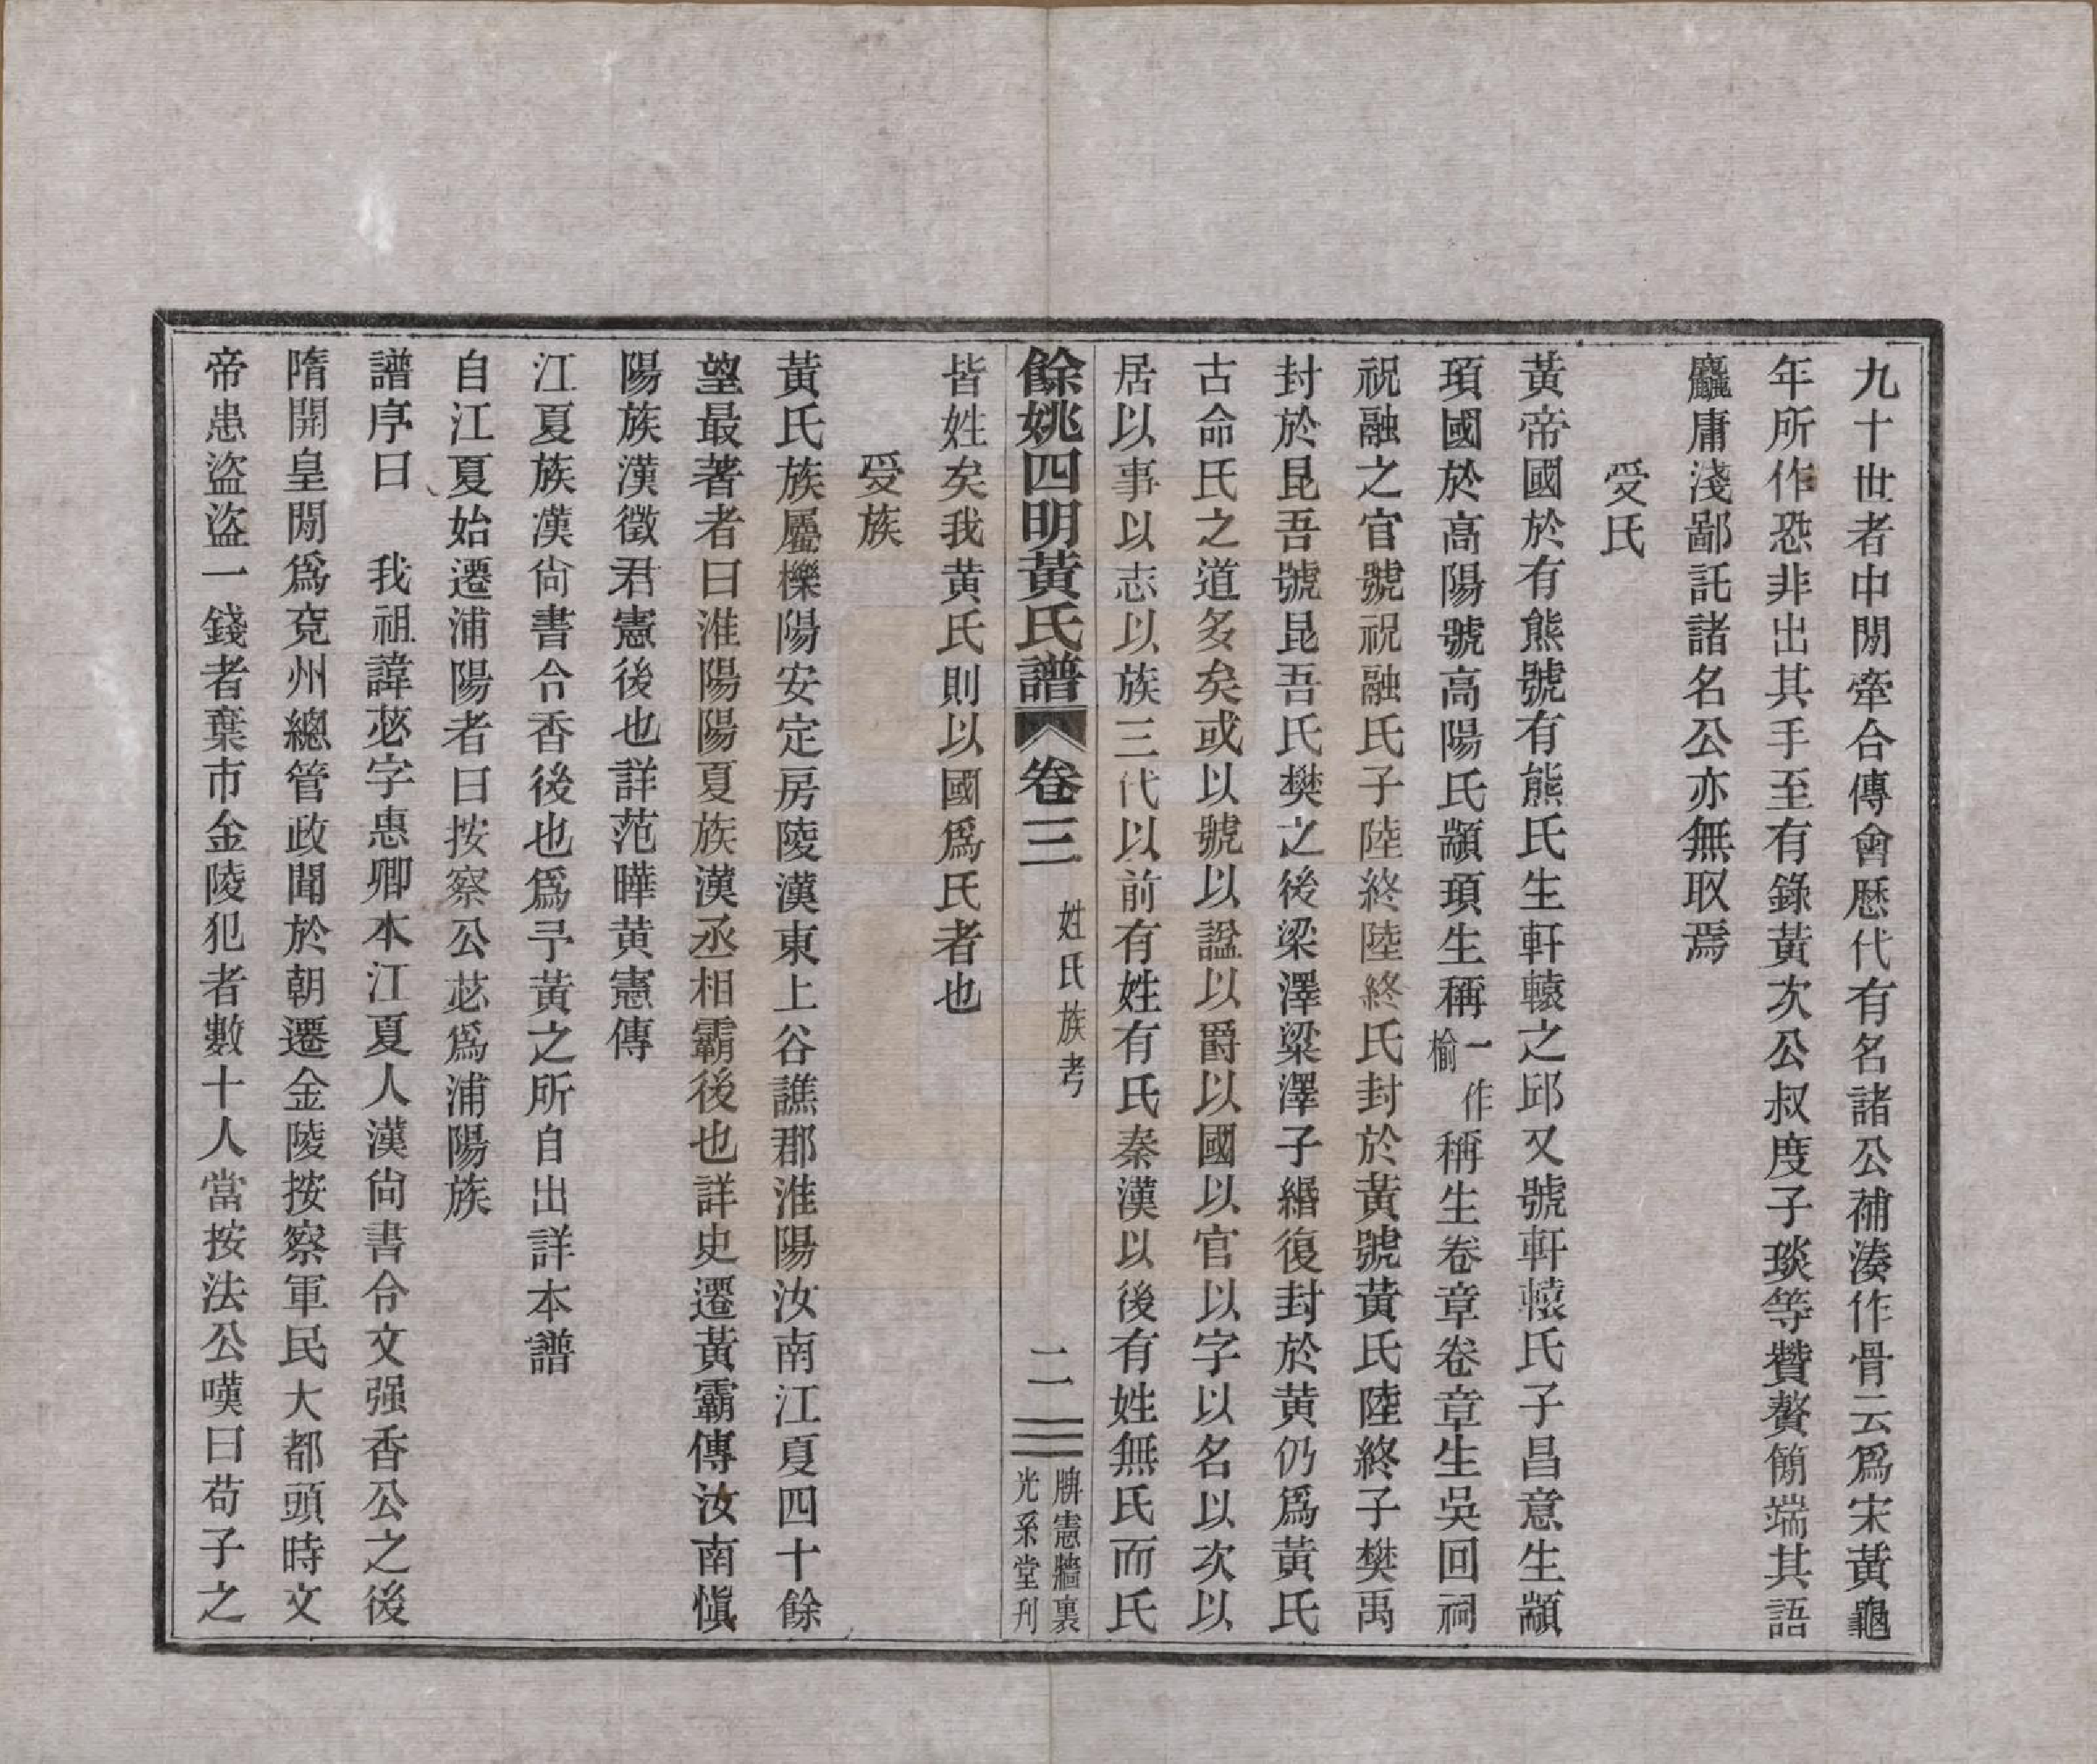 九十世者中閒牽合傳會歷代有名諸公補湊作骨云爲宋黃龜
年所作恐非出其手至有錄黃次公叔度子琰等贊贅簡端其語
麤庸淺鄙託諸名公亦無取焉
受氏
黃帝國於有熊號有熊氏生軒轅之邱又號軒轅氏子昌意生顓
頊國於高陽號高陽氏顓頊生稱一作榆稱生卷章卷章生吳回祠
祝融之官號祝融氏子陸終陸終氏封於黃號黃氏陸終子樊禹
封於昆吾號昆吾氏樊之後梁澤梁澤子緡復封於黃仍爲黃氏
古命氏之道多矣或以號以諡以爵以國以官以字以名以次以
居以事以志以族三代以前有姓有氏秦漢以後有姓無氏而氏
餘姚四明黃氏譜 卷三 姓氏族考 二 竹憲牆裏 光系堂刋
皆姓矣我黃氏則以國爲氏者也
受族
黃氏族屬櫟陽安定房陵漢東上谷譙郡淮陽汝南江夏四十餘
望最著者曰淮陽陽夏族漢丞相霸後也詳史遷黃霸傳汝南愼
陽族漢徵君憲後也詳范曄黃憲傳
江夏族漢尙書令香後也爲予黃之所自出詳本譜
自江夏始遷浦陽者曰按察公苾爲浦陽族
譜序曰 我祖諱苾字惠卿本江夏人漢尙書令文强香公之後
隋開皇閒爲兗州總管政聞於朝遷金陵按察軍民大都頭時文
帝患盜盜一錢者棄市金陵犯者數十人當按法公嘆曰苟子之